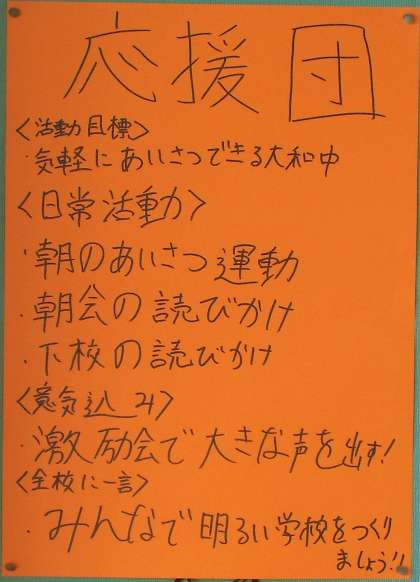 応援団
<活動目標>
・気軽にあいさつできる大和中
<日常活動>
・朝のあいさつ運動
・朝会の読びかけ
・下校の読びかけ
<意気込み>
・激励会で大きな声を出す!
<全校に一言>
・みんなで明るい学校をつくり
ましょう!!